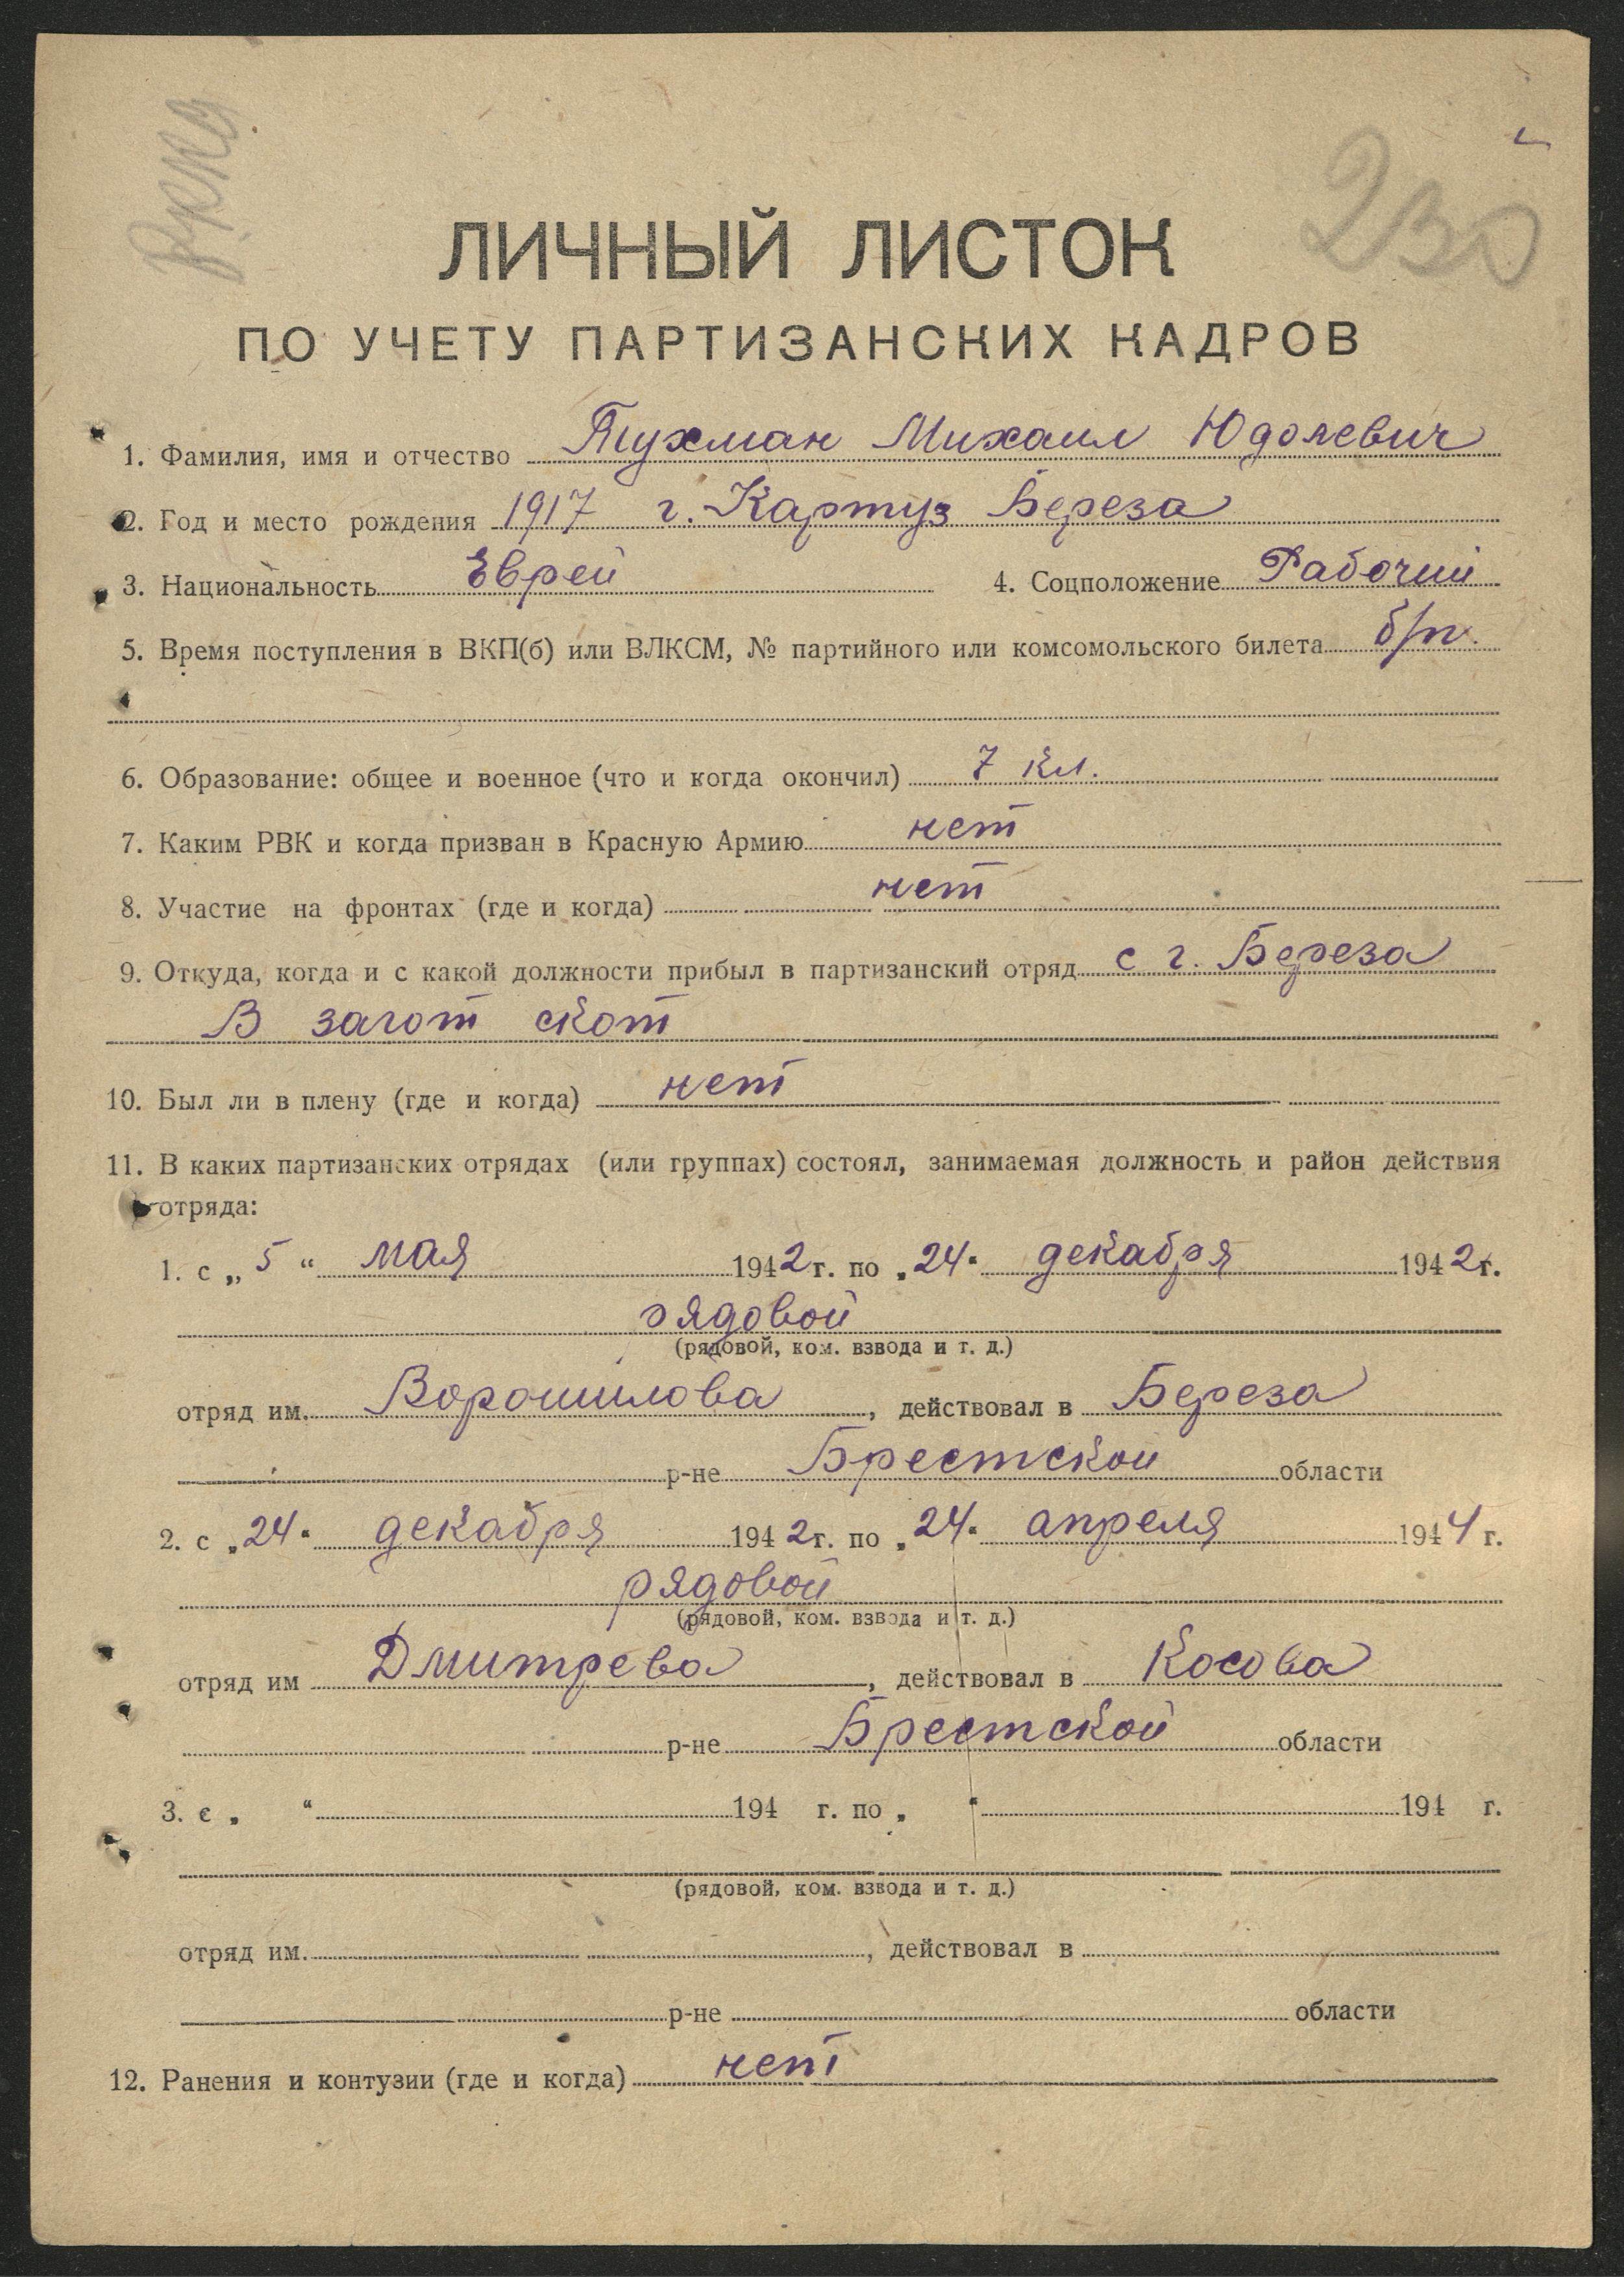 РККА
230
ЛИЧНЫЙ ЛИСТОК
ПО УЧЕТУ ПАРТИЗАНСКИХ КАДРОВ
1. Фамилия, имя и отчество Тухман Михаил Юдолевич
2. Год и место рождения 1917 г. Картуз Береза
3. Национальность Еврей 4. Соцположение Рабочий
5. Время поступления в ВКП(б) или ВЛКСМ, № партийного или комсомольского билета б/п.
6. Образование: общее и военное (что и когда окончил) 7 кл.
7. Каким РВК и когда призван в Красную Армию нет
8. Участие на фронтах (где и когда) нет
9. Откуда, когда и с какой должности прибыл в партизанский отряд с г. Береза
В загот скот
10. Был ли в плену (где и когда) нет
11. В каких партизанских отрядах (или группах) состоял, занимаемая должность и район действия
отряда:
1. с „5“ мая 1942 г. по „24“ декабря 1942 г.
рядовой
(рядовой, ком. взвода и т. д.)
отряд им. Ворошилова, действовал в Береза
р-не Брестской области
2. с „24“ декабря 1942 г. по „24“ апреля 1944 г.
рядовой
(рядовой, ком. взвода и т. д.)
отряд им Дмитрева, действовал в Косова
р-не Брестской области
3. с „ “ 194 г. по „ “ 194 г.
(рядовой, ком. взвода и т. д.)
отряд им. , действовал в
р-не области
12. Ранения и контузии (где и когда) нет